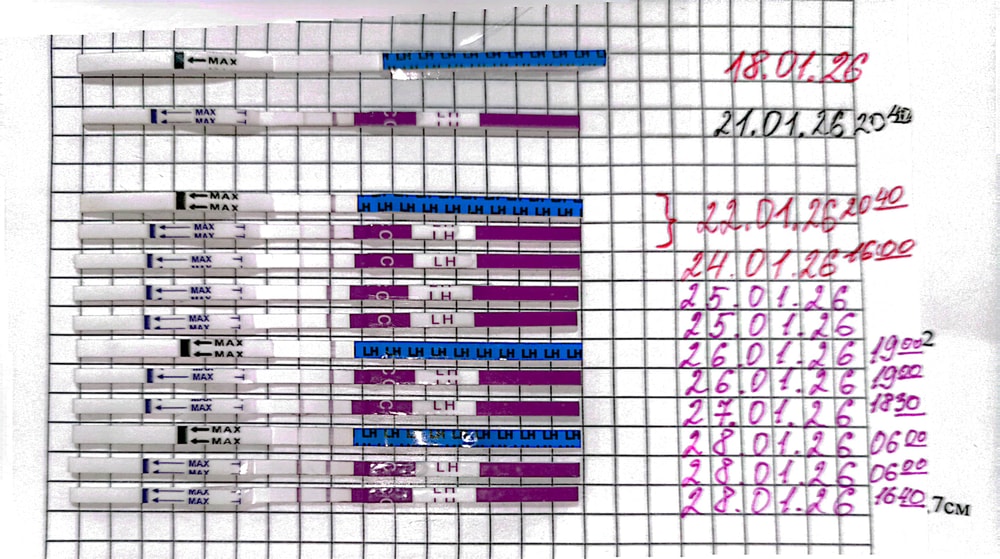 MAX LH LH LH LH LH LH LH 18.01.26
MAX MAX T C LH 21.01.26 20 40
MAX MAX LH LH LH LH LH LH LH 22.01.26 20 40
MAX C LH
MAX C LH 24.01.26 16:00
MAX C LH 25.01.26
MAX C LH 25.01.26
MAX MAX LH LH LH LH LH LH LH LH 26.01.26 19 00 2
MAX C LH 26.01.26 19 00
MAX C LH 27.01.26 18 30
MAX MAX LH LH LH LH LH LH LH LH 28.01.26 06 00
MAX C LH 28.01.26 06 00
MAX MAX C LH 28.01.26 16 40 .7см